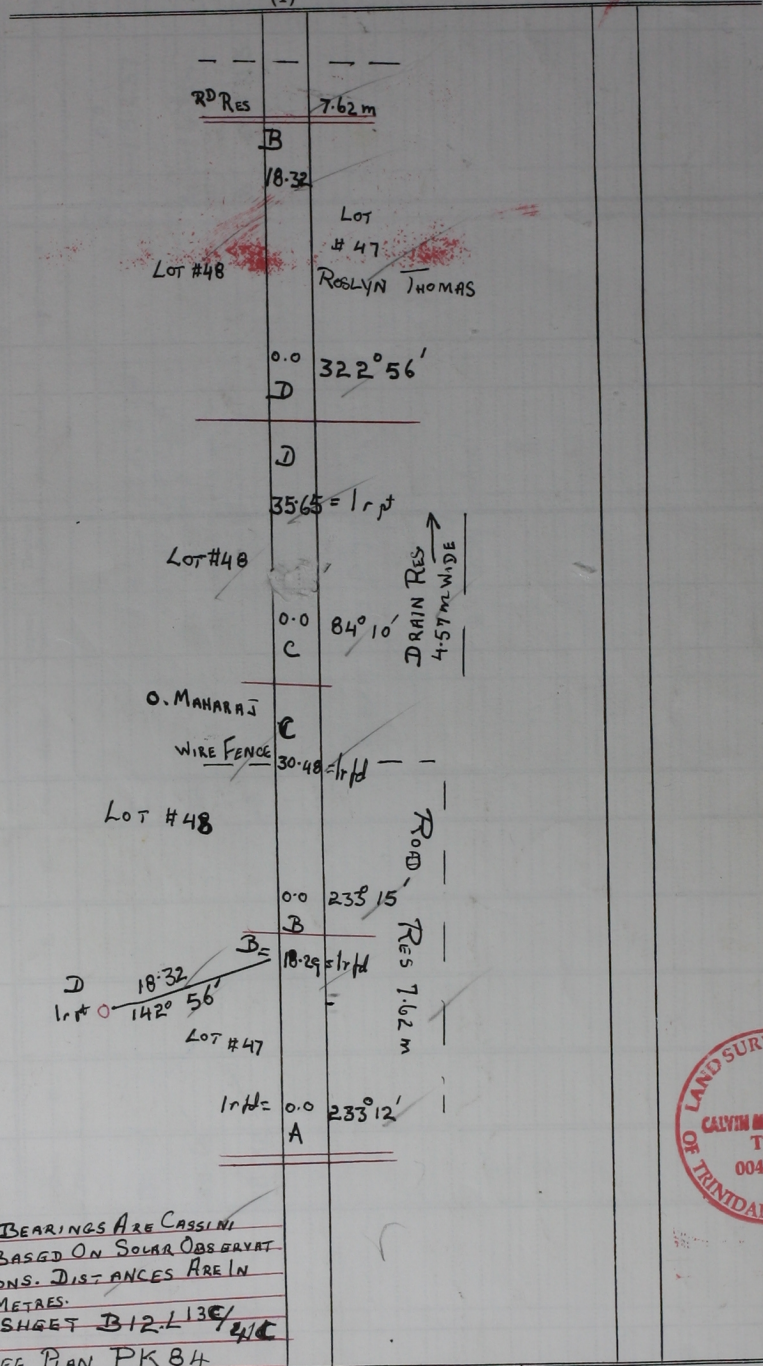 RD RES 7.62 m
B
18.32
LOT
# 47
LOT #48
ROSLYN THOMAS
0.0 322° 56'
D
D
35.65 = Ir pt
LOT #48
DRAIN RES
4.57m WIDE
0.0 84° 10'
C
O. MAHARAJ
C
WIRE FENCE 30.48 = Ir fd
LOT #48
ROAD - RES 7.62 m
0.0 233° 15'
B
B = 18.29 = Ir fd
18.32
D
Ir pt 142° 56'
LOT #47
Ir fd = 0.0 233° 12'
A
BEARINGS ARE CASSINI
BASED ON SOLAR OBSERVAT
ONS. DISTANCES ARE IN
METRES.
SHEET B12.L 13C/41C
PLAN PK 84
LAND SUR
CALVIN
004
OF TRINIDA